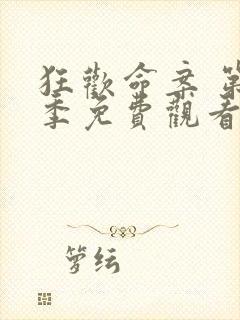 狂歡命案 第
季免費觀看
箩纭